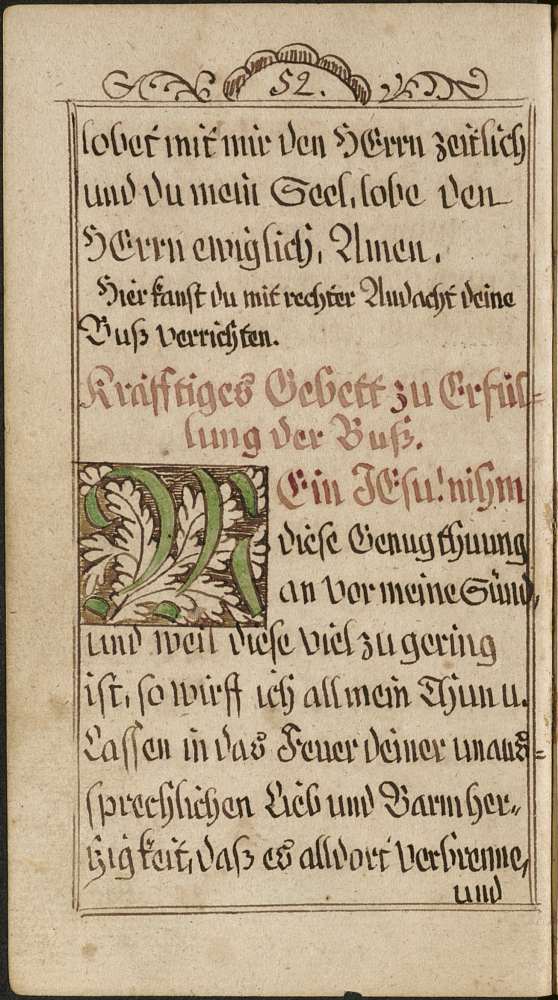 52.
lobet mit mir den HErrn zeitlich
und du mein Seel, lobe den
HErrn ewiglich, Amen.
Hier kanst du mit rechter Andacht deine
Buß verrichten.
Kräfftiges Gebett zu Erfül=
lung der Buß.
MEin JEsu! nihm
diese Genugthuung
an vor meine Sünd,
und weil diese viel zu gering
ist, so wirff ich all mein Thun u.
Lassen in das Feuer deiner unaus=
sprechlichen Lieb und Barmher„
tzigkeit, daß es alldort verbrenne,
und